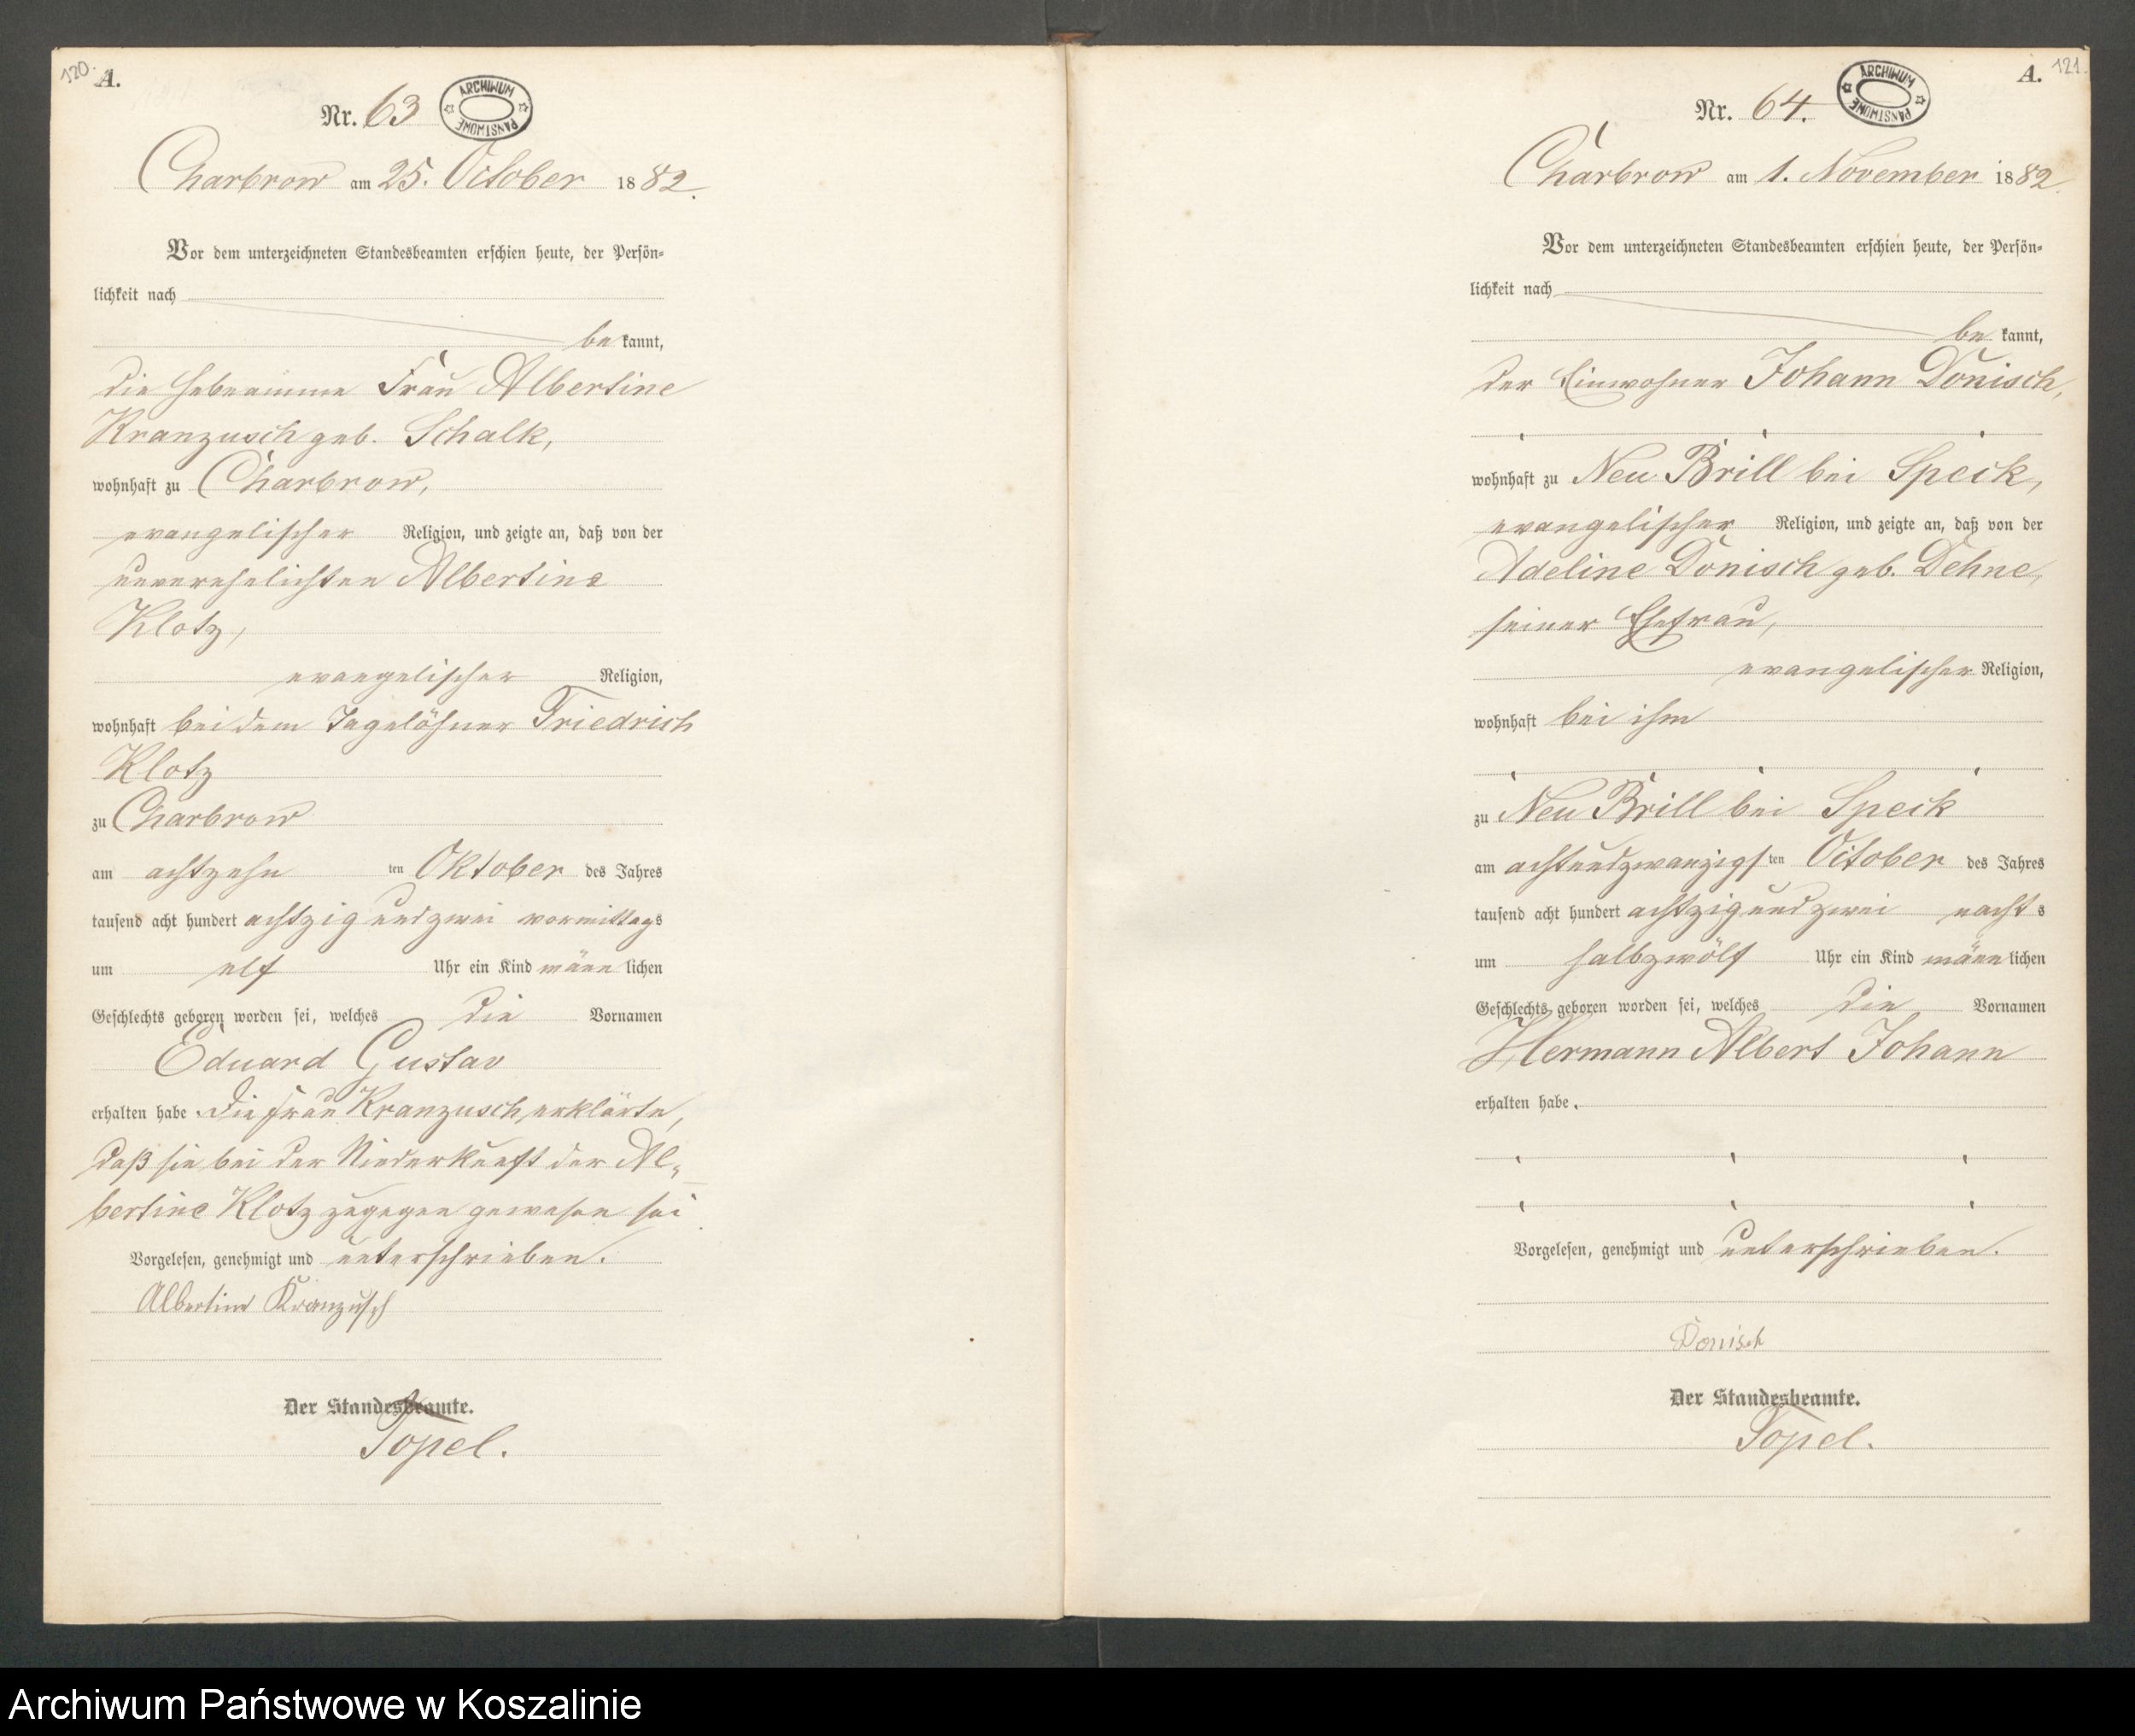 120.
A.
Nr. 63
ARCHIWUM PAŃSTWOWE
Charbrow am 25. October 1882.
Vor dem unterzeichneten Standesbeamten erschien heute, der Persön-
lichkeit nach
bekannt,
die Hebeamme Frau Albertine
Kranzusch geb. Schalk,
wohnhaft zu Charbrow,
evangelischer Religion, und zeigte an, daß von der
unverehelichten Albertine
Klotz,
evangelischer Religion,
wohnhaft bei dem Tagelöhner Friedrich
Klotz
zu Charbrow
am achtzehn ten Oktober des Jahres
tausend acht hundert achtzig und zwei vormittags
um elf Uhr ein Kind männlichen
Geschlechts geboren worden sei, welches die Vornamen
Eduard Gustav
erhalten habe. Die Frau Kranzusch erklärte,
daß sie bei der Niederkunft der Al-
bertine Klotz zugegen gewesen sei.
Vorgelesen, genehmigt und unterschrieben.
Albertine Kranzusch
Der Standesbeamte.
Topel.
A.
121.
Nr. 64.
ARCHIWUM PAŃSTWOWE
Charbrow am 1. November 1882.
Vor dem unterzeichneten Standesbeamten erschien heute, der Persön-
lichkeit nach
bekannt,
der Einwohner Johann Donisch,
wohnhaft zu Neu Brill bei Speck,
evangelischer Religion, und zeigte an, daß von der
Adeline Donisch geb. Dehne,
seiner Ehefrau,
evangelischer Religion,
wohnhaft bei ihm
zu Neu Brill bei Speck
am achtundzwanzigsten October des Jahres
tausend acht hundert achtzig und zwei nachts
um halbzwölf Uhr ein Kind männlichen
Geschlechts geboren worden sei, welches die Vornamen
Hermann Albert Johann
erhalten habe.
Vorgelesen, genehmigt und unterschrieben.
Donisch
Der Standesbeamte.
Topel.
Archiwum Państwowe w Koszalinie